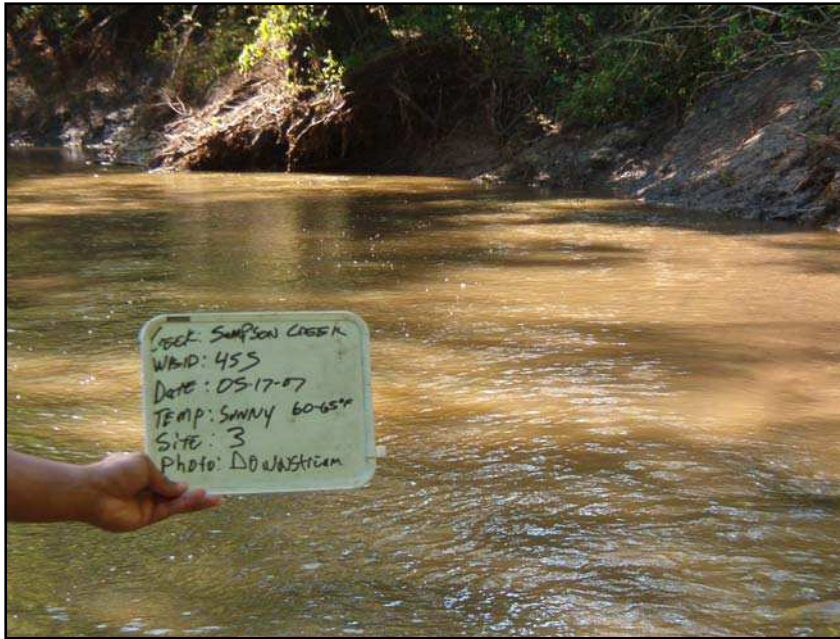 Creek: Simpson Creek
WBID: 455
Date: 05-17-07
Temp: Sunny 60-65°F
Site: 3
Photo: Downstream